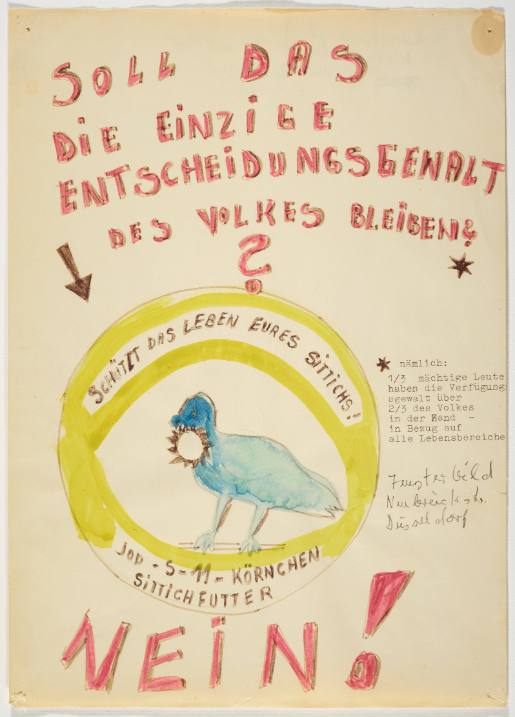 SOLL DAS
DIE EINZIGE
ENTSCHEIDUNGSGEWALT
DES VOLKES BLEIBEN?
?
*
SCHÜTZT DAS LEBEN EURES SITTICHS!
* nämlich:
1/3 mächtige Leute
haben die Verfügung
sgewalt über
2/3 des Volkes
in der Hand -
in Bezug auf
alle Lebensbereiche
Fensterbild
Neubrückstr.
Düsseldorf
JOD-S-11-KÖRNCHEN
SITTICHFUTTER
NEIN!